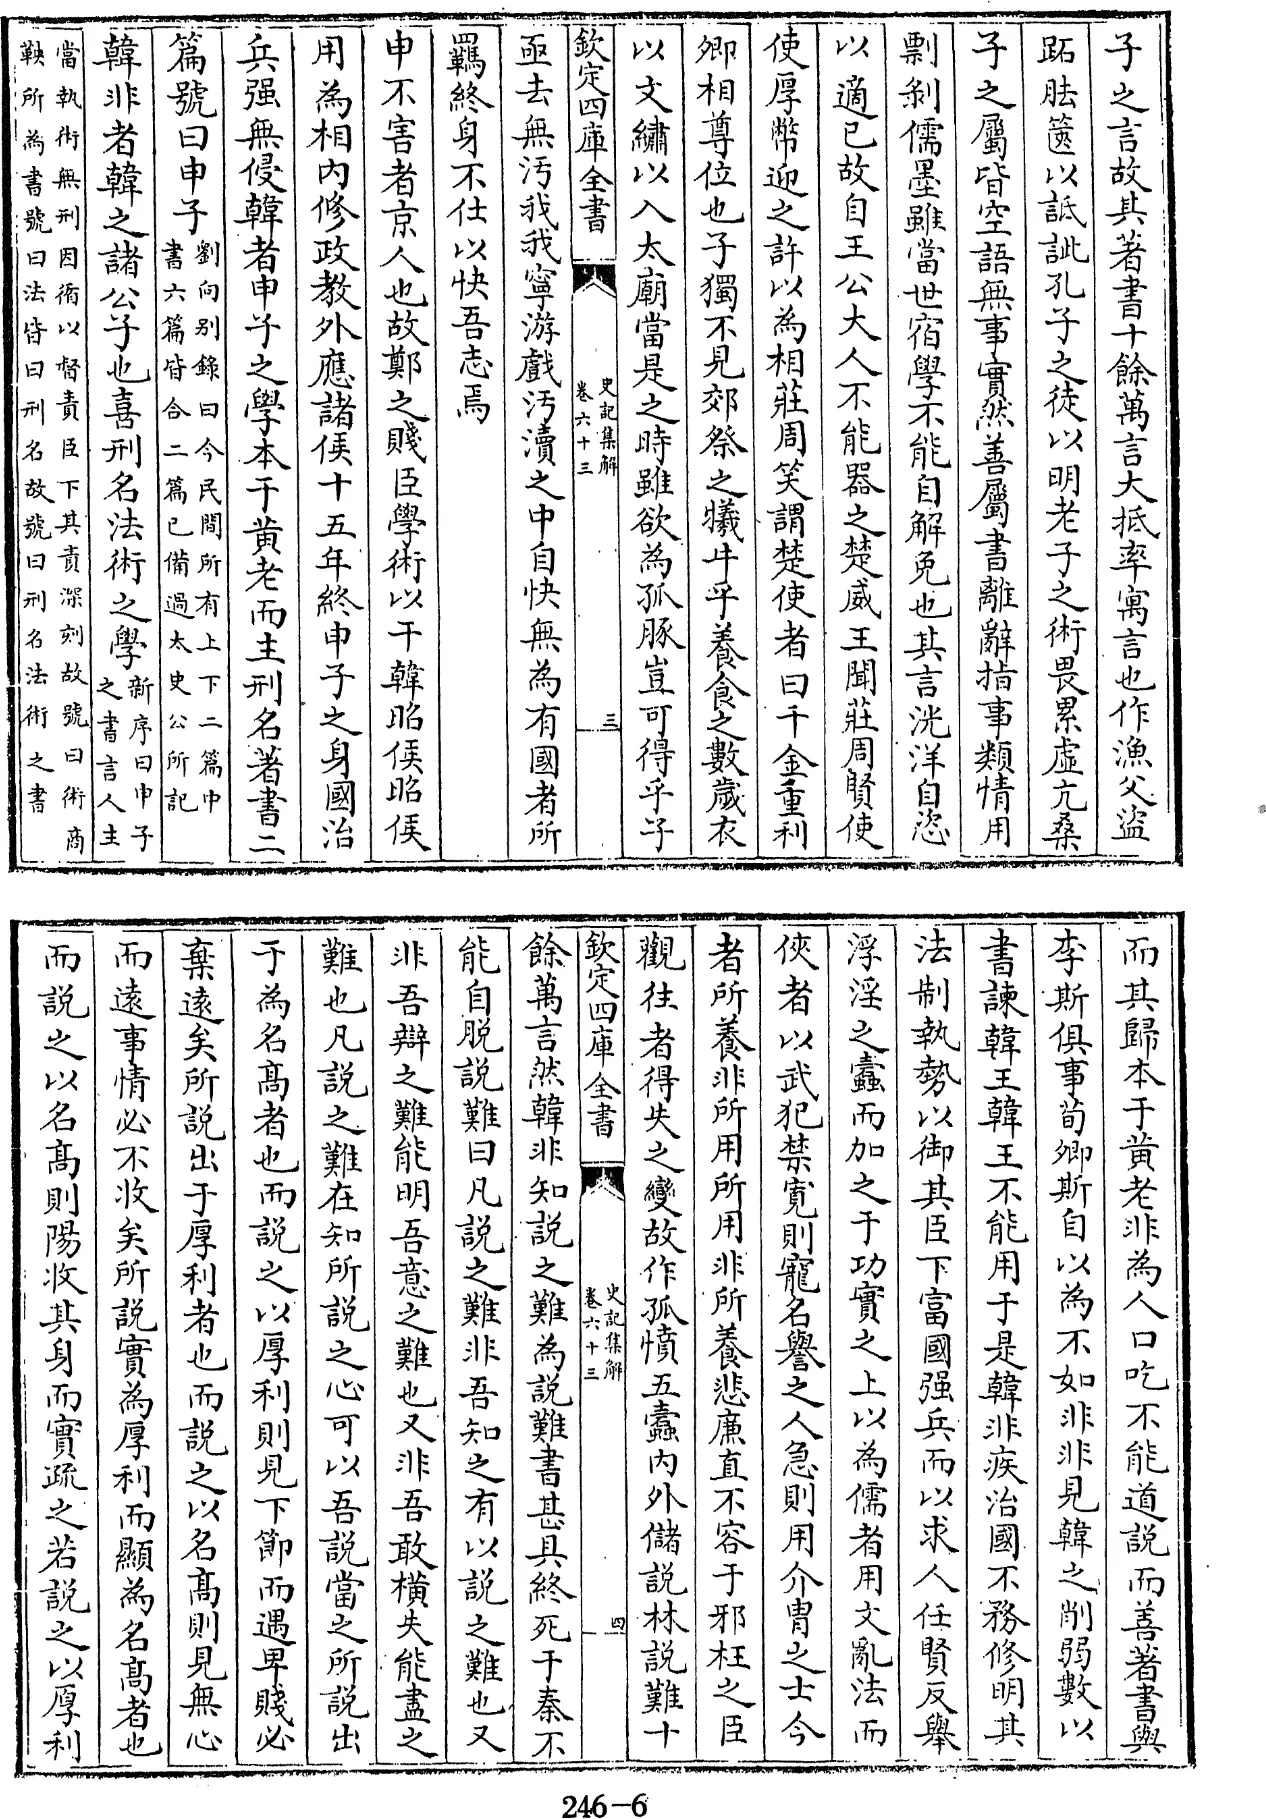 子之言故其著書十餘萬言大抵率寓言也作漁父盜
跖胠篋以詆訿孔子之徒以明老子之術畏累虛亢桑
子之屬皆空語無事實然善屬書離辭指事類情用
剽剝儒墨雖當世宿學不能自解免也其言洸洋自恣
以適已故自王公大人不能器之楚威王聞莊周賢使
使厚幣迎之許以為相莊周笑謂楚使者曰千金重利
卿相尊位也子獨不見郊祭之犧牛乎養食之數歲衣
以文繡以入太廟當是之時雖欲為孤豚豈可得乎子
欽定四庫全書
史記集解
卷六十三
三
亟去無汚我我寧游戲汚瀆之中自快無為有國者所
羈終身不仕以快吾志焉
申不害者京人也故鄭之賤臣學術以干韓昭侯昭侯
用為相內修政教外應諸侯十五年終申子之身國治
兵强無侵韓者申子之學本于黃老而主刑名著書二
篇號曰申子
劉向别錄曰今民間所有上下二篇中
書六篇皆合二篇已備過太史公所記
韓非者韓之諸公子也喜刑名法術之學
新序曰申子
之書言人主
當執術無刑因循以督責臣下其責深刻故號曰術商
鞅所為書號曰法皆曰刑名故號曰刑名法術之書
而其歸本于黃老非為人口吃不能道説而善著書與
李斯俱事荀卿斯自以為不如非非見韓之削弱數以
書諫韓王韓王不能用于是韓非疾治國不務修明其
法制執勢以御其臣下富國强兵而以求人任賢反舉
浮淫之蠹而加之于功實之上以為儒者用文亂法而
俠者以武犯禁寛則寵名譽之人急則用介胄之士今
者所養非所用所用非所養悲廉直不容于邪枉之臣
觀往者得失之變故作孤憤五蠹內外儲説林説難十
欽定四庫全書
史記集解
卷六十三
四
餘萬言然韓非知説之難為説難書甚具終死于秦不
能自脱説難曰凡説之難非吾知之有以説之難也又
非吾辯之難能明吾意之難也又非吾敢橫失能盡之
難也凡説之難在知所説之心可以吾説當之所説出
于為名髙者也而説之以厚利則見下節而遇卑賤必
棄遠矣所説出于厚利者也而説之以名髙則見無心
而遠事情必不收矣所説實為厚利而顯為名髙者也
而説之以名髙則陽收其身而實疏之若説之以厚利
246-6